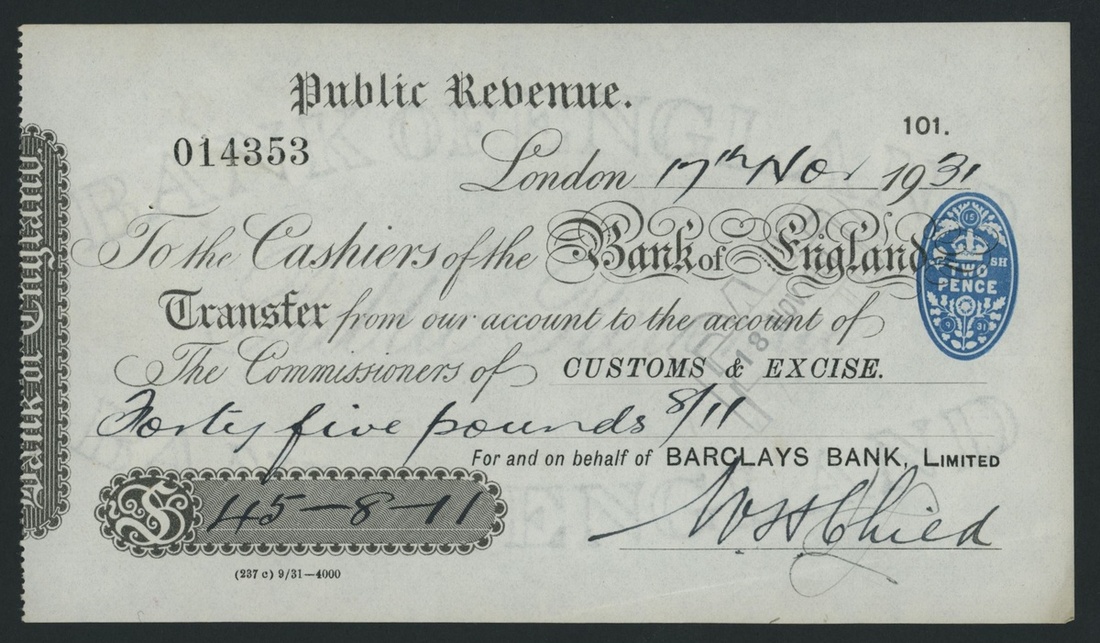 Public Revenue.
014353
101.
London 17th Nov 1931
To the Cashiers of the Bank of England
15
SH
TWO
PENCE
9 31
Transfer from our account to the account of
18 NOV
The Commissioners of CUSTOMS & EXCISE.
Forty five pounds 8/11
For and on behalf of BARCLAYS BANK, LIMITED
£ 45-8-11
(237 c) 9/31—4000
Bank of England
BANK OF ENGLAND